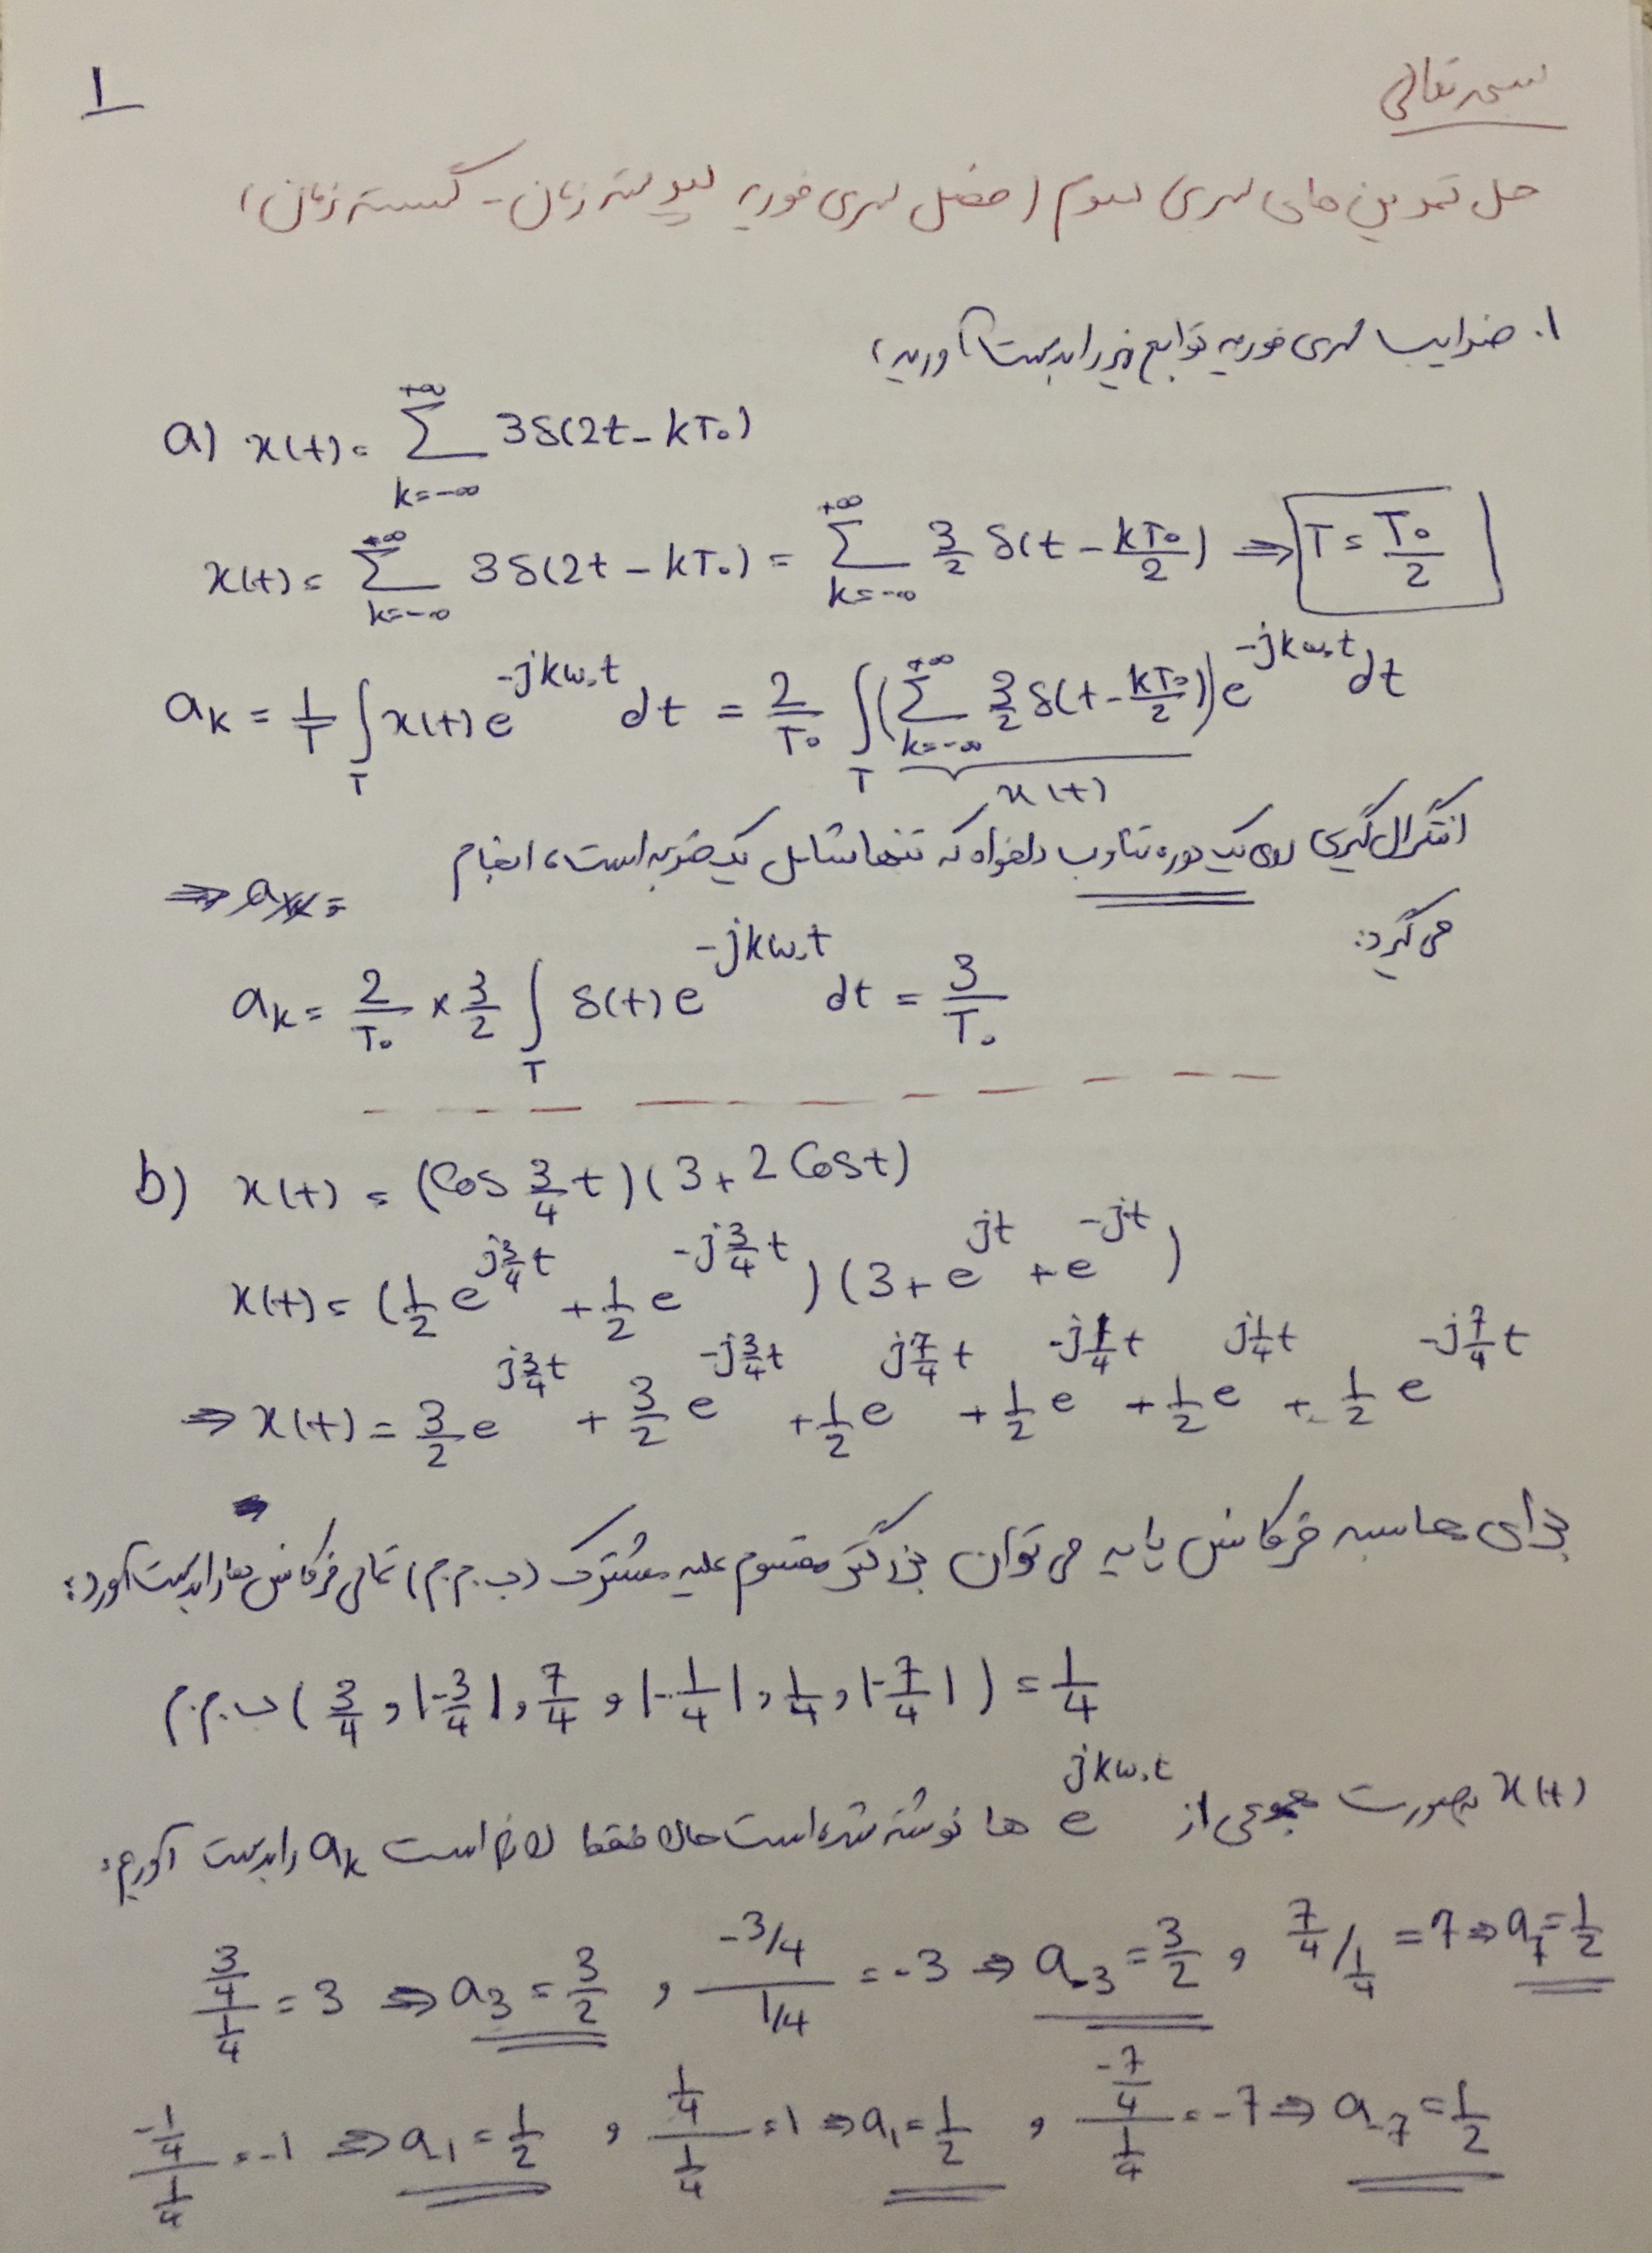 ۱
بسمه تعالی
حل تمرین های سری سوم (فصل سری فوریه پیوسته زمان - گسسته زمان)
۱. ضرایب سری فوریه توابع زیر را بدست آورید؛
a) x(t) = ∑_{k=-∞}^{+∞} 3δ(2t - kT₀)
x(t) = ∑_{k=-∞}^{+∞} 3δ(2t - kT₀) = ∑_{k=-∞}^{+∞} 3/2 δ(t - kT₀/2) ⇒ T = T₀/2
a_k = 1/T ∫_T x(t) e^{-jkω₀t} dt = 2/T₀ ∫_T (∑_{k=-∞}^{+∞} 3/2 δ(t - kT₀/2)) e^{-jkω₀t} dt
x(t)
انتگرال گیری روی یک دوره تناوب دلخواه که تنها شامل یک ضربه است، انجام
می گیرد:
a_k = 2/T₀ × 3/2 ∫_T δ(t) e^{-jkω₀t} dt = 3/T₀
b) x(t) = (Cos 3/4 t)(3 + 2 Cos t)
x(t) = (1/2 e^{j3/4t} + 1/2 e^{-j3/4t})(3 + e^{jt} + e^{-jt})
⇒ x(t) = 3/2 e^{j3/4t} + 3/2 e^{-j3/4t} + 1/2 e^{j7/4t} + 1/2 e^{-j1/4t} + 1/2 e^{j1/4t} + 1/2 e^{-j7/4t}
برای محاسبه فرکانس پایه می توان بزرگترین مقسوم علیه مشترک (ب.م.م) تمامی فرکانس ها را بدست آورد:
ب.م.م (3/4 , |-3/4| , 7/4 , |-1/4| , 1/4 , |-7/4|) = 1/4
x(t) بصورت مجموعی از e^{jkω₀t} ها نوشته شده است حال فقط لازم است a_k را بدست آوریم:
(3/4)/(1/4) = 3 ⇒ a₃ = 3/2 , (-3/4)/(1/4) = -3 ⇒ a₋₃ = 3/2 , (7/4)/(1/4) = 7 ⇒ a₇ = 1/2
(-1/4)/(1/4) = -1 ⇒ a₁ = 1/2 , (1/4)/(1/4) = 1 ⇒ a₁ = 1/2 , (-7/4)/(1/4) = -7 ⇒ a₋₇ = 1/2